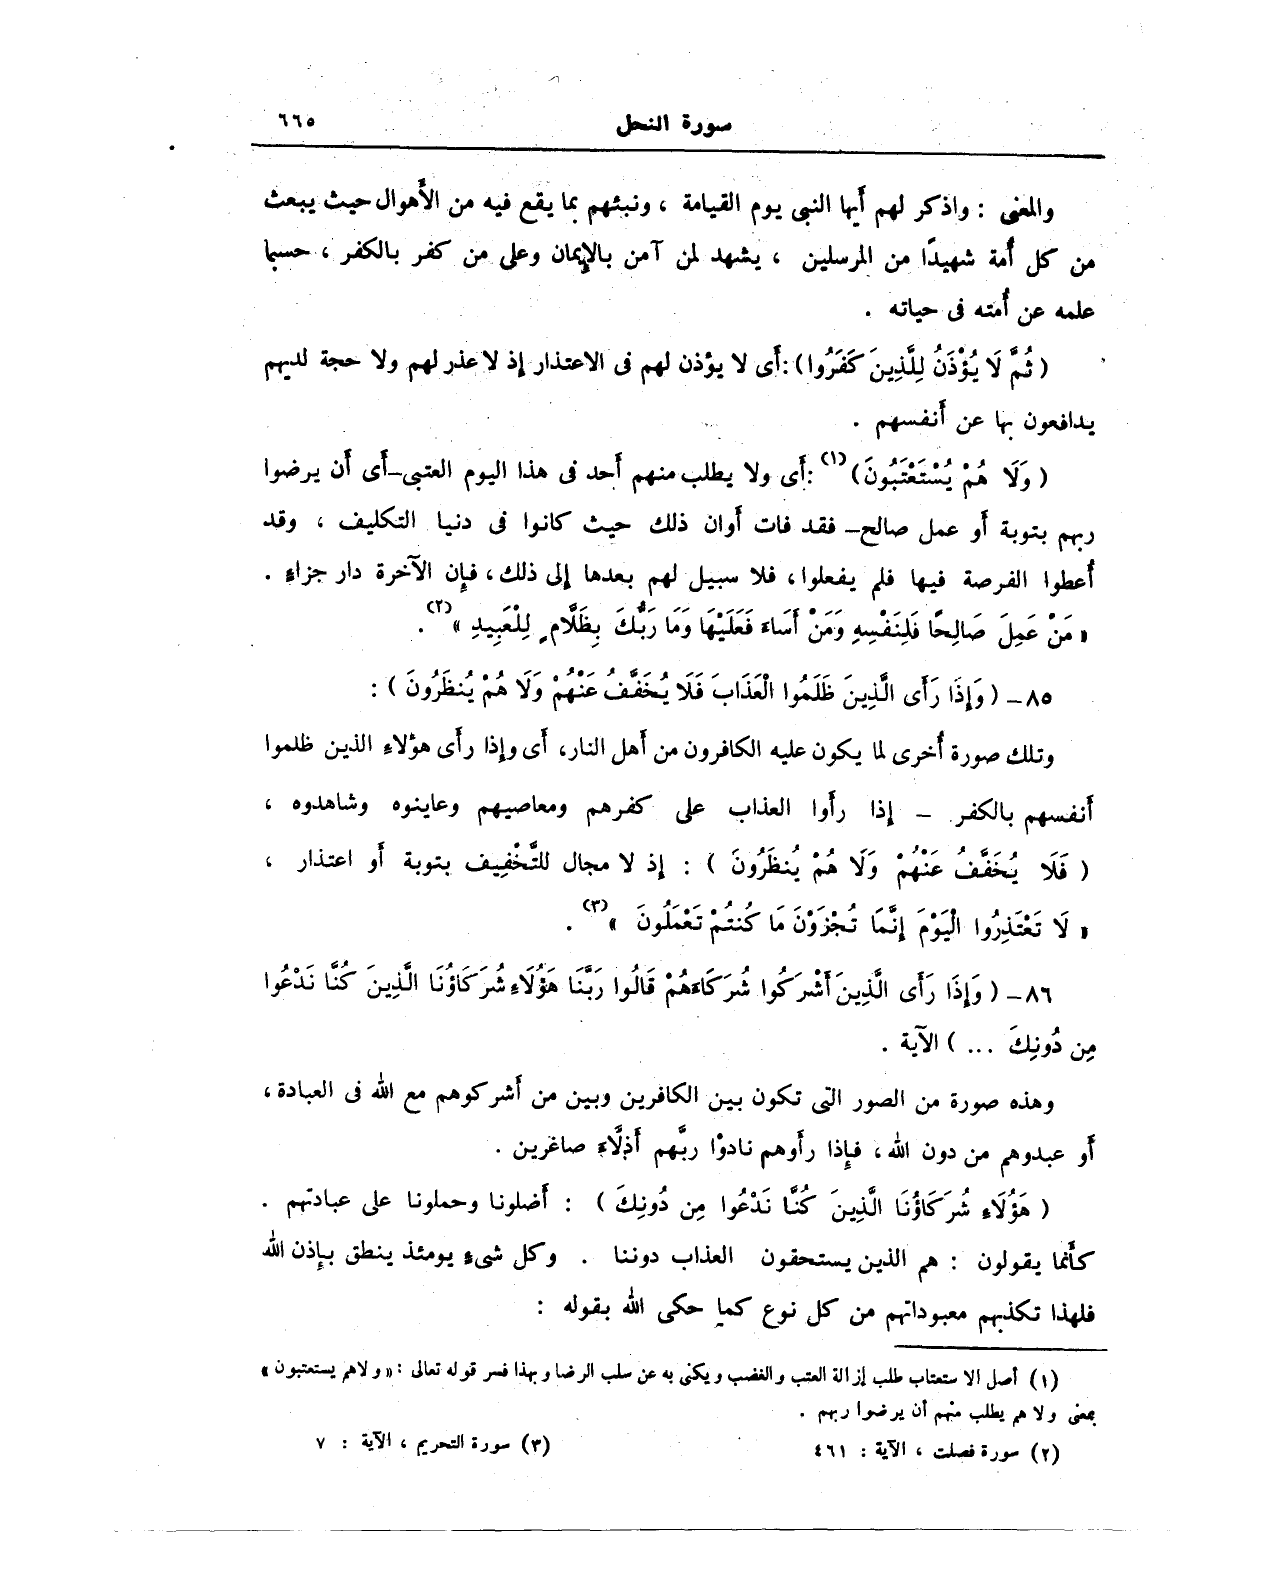 سورة النحل ٦٦٥
والمعنى : واذكر لهم أيها النبى يوم القيامة ، ونبئهم بما يقع فيه من الأهوال حيث يبعث
من كل أُمة شهيدًا من المرسلين ، يشهد لمن آمن بالإيمان وعلى من كفر بالكفر ، حسبما
علمه عن أُمته فى حياته .
( ثُمَّ لَا يُؤْذَنُ لِلَّذِينَ كَفَرُوا ) : أَى لا يؤذن لهم فى الاعتذار إذ لا عذر لهم ولا حجة لديهم
يدافعون بها عن أَنفسهم .
( وَلَا هُمْ يُسْتَعْتَبُونَ ) (١) : أَى ولا يطلب منهم أَحد فى هذا اليوم العتبى ــ أَى أَن يرضوا
ربهم بتوبة أَو عمل صالح ــ فقد فات أَوان ذلك حيث كانوا فى دنيا التكليف ، وقد
أُعطوا الفرصة فيها فلم يفعلوا ، فلا سبيل لهم بعدها إلى ذلك ، فإن الآخرة دار جزاءٍ .
« مَنْ عَمِلَ صَالِحًا فَلِنَفْسِهِ وَمَنْ أَسَاءَ فَعَلَيْهَا وَمَا رَبُّكَ بِظَلَّامٍ لِلْعَبِيدِ » (٢) .
٨٥ ــ ( وَإِذَا رَأَى الَّذِينَ ظَلَمُوا الْعَذَابَ فَلَا يُخَفَّفُ عَنْهُمْ وَلَا هُمْ يُنظَرُونَ ) :
وتلك صورة أُخرى لما يكون عليه الكافرون من أَهل النار ، أَى وإذا رأَى هؤلاءِ الذين ظلموا
أَنفسهم بالكفر ــ إذا رأَوا العذاب على كفرهم ومعاصيهم وعاينوه وشاهدوه ،
( فَلَا يُخَفَّفُ عَنْهُمْ وَلَا هُمْ يُنظَرُونَ ) : إذ لا مجال للتَّخْفِيف بتوبة أَو اعتذار ،
« لَا تَعْتَذِرُوا الْيَوْمَ إِنَّمَا تُجْزَوْنَ مَا كُنتُمْ تَعْمَلُونَ » (٣) .
٨٦ ــ ( وَإِذَا رَأَى الَّذِينَ أَشْرَكُوا شُرَكَاءَهُمْ قَالُوا رَبَّنَا هَؤُلَاءِ شُرَكَاؤُنَا الَّذِينَ كُنَّا نَدْعُوا
مِن دُونِكَ ... ) الآية .
وهذه صورة من الصور التى تكون بين الكافرين وبين من أَشركوهم مع الله فى العبادة ،
أَو عبدوهم من دون الله ، فإذا رأوهم نادوْا ربَّهم أَذِلَّاءَ صاغرين .
( هَؤُلَاءِ شُرَكَاؤُنَا الَّذِينَ كُنَّا نَدْعُوا مِن دُونِكَ ) : أَضلونا وحملونا على عبادتهم .
كأَنما يقولون : هم الذين يستحقون العذاب دوننا . وكل شىءٍ يومئذ ينطق بإذن الله
فلهذا تكذبهم معبوداتهم من كل نوع كما حكى الله بقوله :
(١) أصل الاستعتاب طلب إزالة العتب والغضب ويكنى به عن سلب الرضا وبهذا فسر قوله تعالى : « ولاهم يستعتبون »
بمعنى ولا هم يطلب منهم أن يرضوا ربهم .
(٢) سورة فصلت ، الآية : ٤٦١ (٣) سورة التحريم ، الآية : ٧